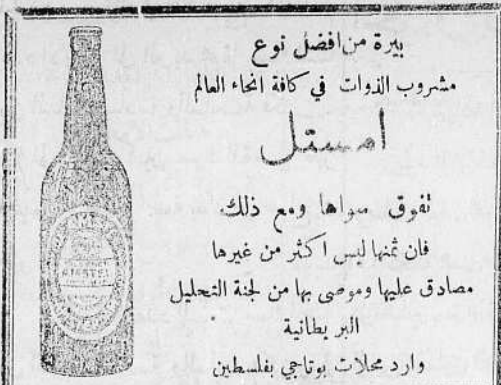 بيرة من افضل نوع
مشروب الذوات في كافة انحاء العالم
امستل
تفوق سواها ومع ذلك
فان ثمنها ليس اكثر من غيرها
مصادق عليها وموصى بها من لجنة التحليل
البريطانية
وارد محلات بوتاجي بفلسطين
AMSTEL